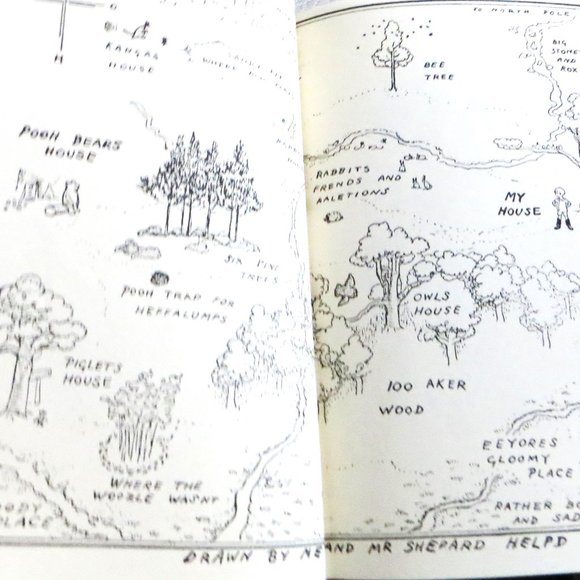 KANGAS
HOUSE
POOH BEARS
HOUSE
SIX PINE
TREES
POOH TRAP FOR
HEFFALUMPS
PIGLETS
HOUSE
WHERE THE
WOOZLE WASNT
PLACE
TO NORTH POLE
BEE
TREE
BIG
STONES
AND
ROX
RABBITS
FRENDS AND
RALETIONS
MY
HOUSE
OWLS
HOUSE
100 AKER
WOOD
EEYORES
GLOOMY
PLACE
RATHER BO
AND SAD
DRAWN BY ME AND MR SHEPARD HELPD